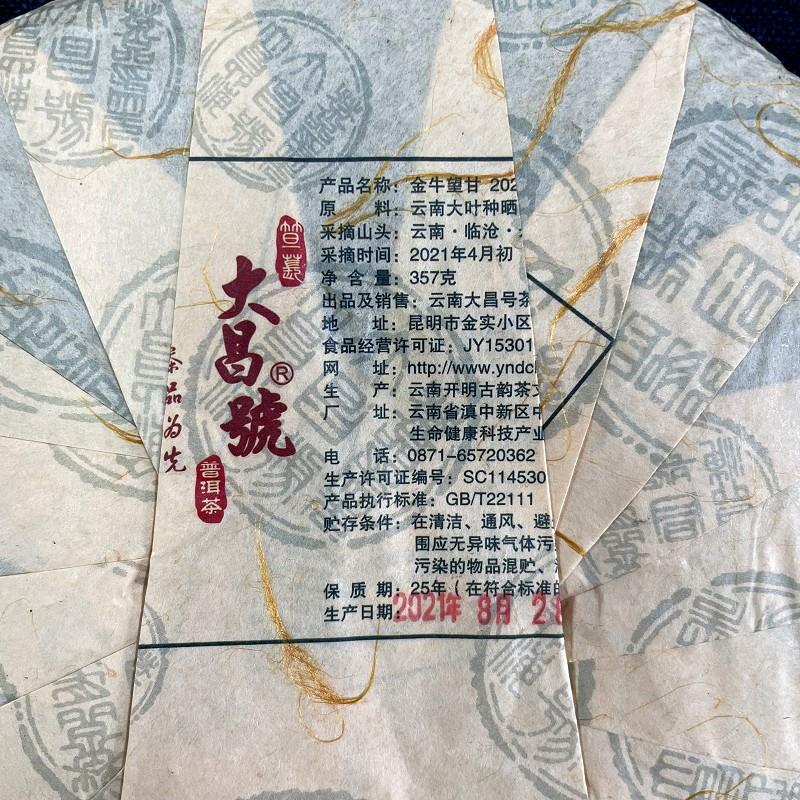 大昌號®
普洱茶
茶品为先
产品名称：金牛望甘 202
原 料：云南大叶种晒
采摘山头：云南·临沧·
采摘时间：2021年4月初
净 含 量：357克
出品及销售：云南大昌号茶
地 址：昆明市金实小区
食品经营许可证：JY15301
网 址：http://www.yndc
生 产：云南开明古韵茶
厂 址：云南省滇中新区
生命健康科技产业
电 话：0871-65720362
生产许可证编号：SC114530
产品执行标准：GB/T22111
贮存条件：在清洁、通风、避
围应无异味气体污
污染的物品混贮、
保 质 期：25年（在符合标准
生产日期：2021年 8月 28